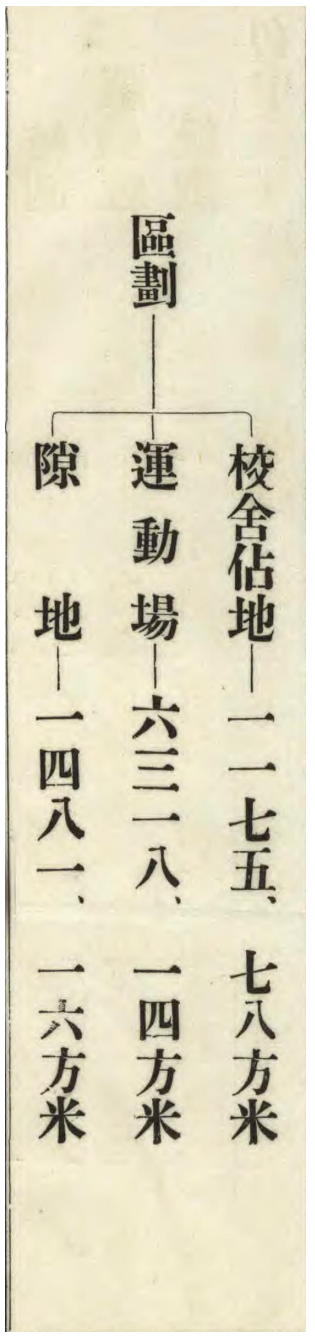 區劃
校舍佔地一一七五、七八方米
運動場六三一八、一四方米
隙地一四八一、一六方米